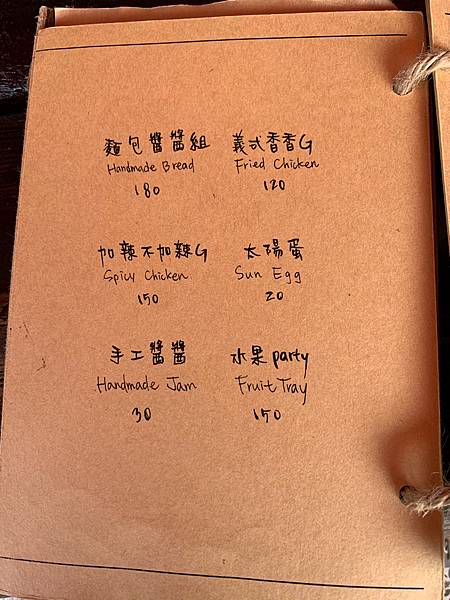 麵包醬醬組
Handmade Bread
180
義式香香G
Fried Chicken
120
加辣不加辣G
Spicy Chicken
150
太陽蛋
Sun Egg
20
手工醬醬
Handmade Jam
30
水果party
Fruit Tray
150